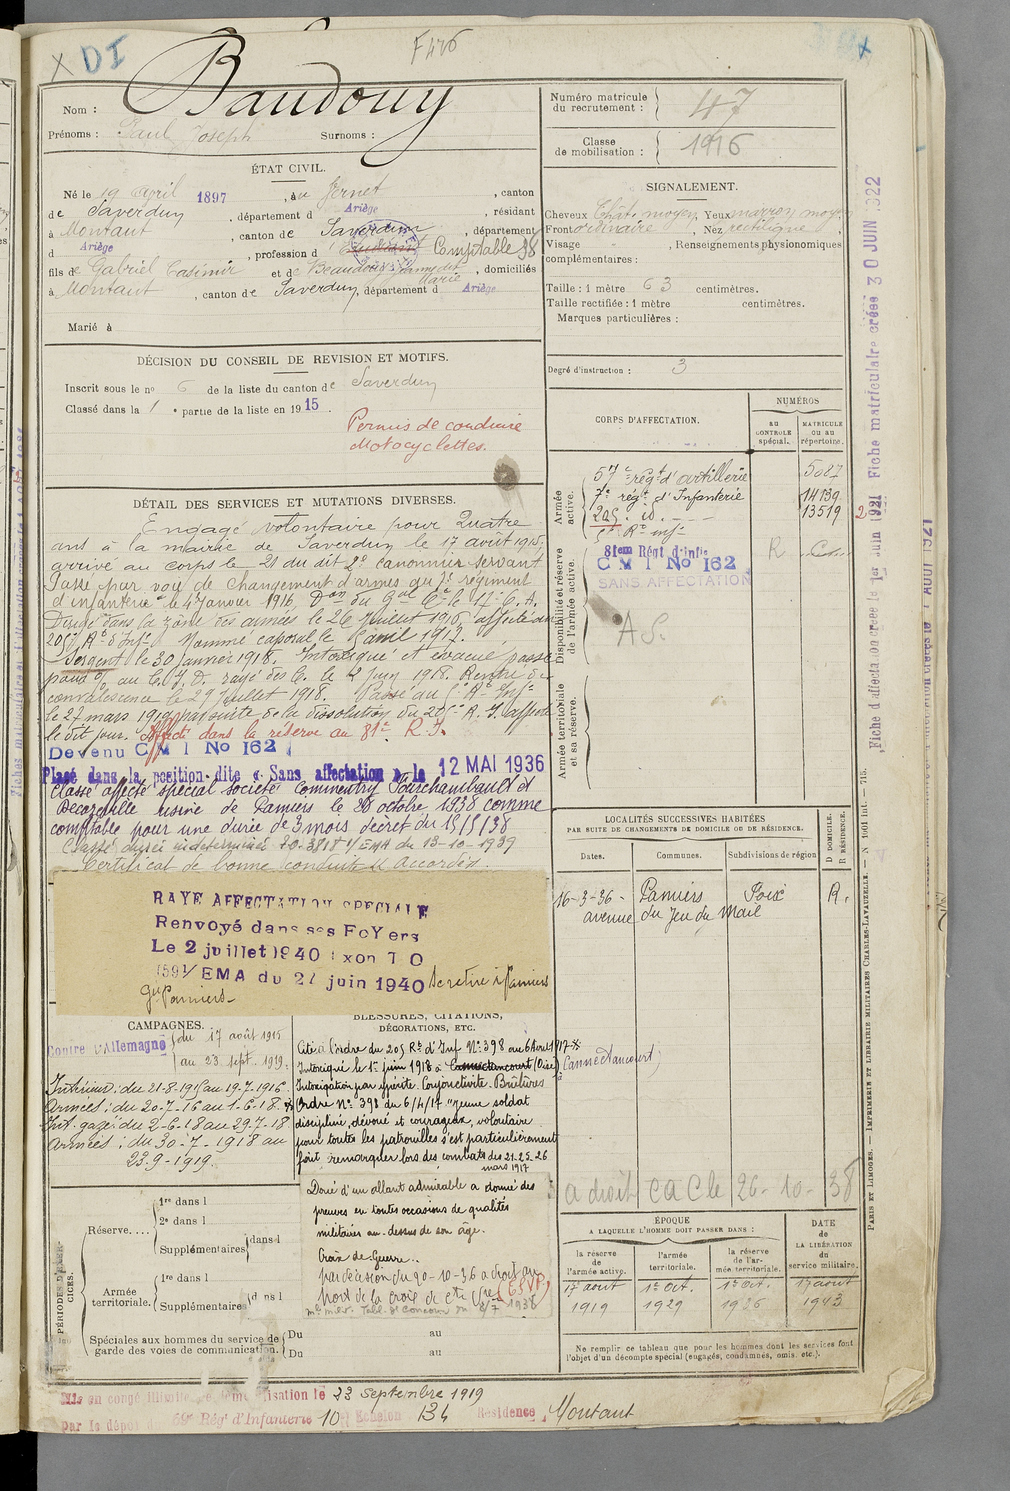 X DI
F 476
Nom : Baudouy
Prénoms : Paul Joseph Surnoms :
ÉTAT CIVIL.
Né le 19 April 1897 , à au Vernet , canton
de Saverdun , département d Ariège , résidant
à Montaut , canton de Saverdun , département
d Ariège , profession d Etudiant Comptable 38
fils de Gabriel Casimir et de Beaudouy Jeanne dit Marie , domiciliés
à Montaut , canton de Saverdun, département d Ariège
Marié à
DÉCISION DU CONSEIL DE REVISION ET MOTIFS.
Inscrit sous le no 6 de la liste du canton de Saverdun
Classé dans la 1 e partie de la liste en 1915.
Permis de conduire
Motocyclettes.
DÉTAIL DES SERVICES ET MUTATIONS DIVERSES.
Engagé volontaire pour quatre
ans à la mairie de Saverdun le 17 août 1915.
arrivé au corps le 21 du dit 2e canonnier servant
Passé par voie de changement d'armes au 7e régiment
d'infanterie le 4 Janvier 1916, Don du Gal Ct le 17e C.A.
Passé dans la zone des armées le 26 juillet 1916, affecté au
209e R° d'Inf. Nommé caporal le avril 1917.
Sergent le 30 janvier 1918. Intoxiqué et évacué passé
au rayé des C. le 2 Juin 1918. Rentré de
convalescence le 29 Juillet 1918. Passé au R° Infie
le 27 mars 1919 par suite de la dissolution du 209e R. I. affecté
le dit jour. Affecté dans la réserve au 81e R. I.
Devenu C M I No 162
Placé dans la position dite « Sans affectation » le 12 MAI 1936
Classé affecté spécial société Commentry Fourchambault et
Decazeville usine de Pamiers le 26 octobre 1938 comme
comptable pour une durée de 3 mois décret du 15/5/38
Classé durée indéterminée 1/EMA du 13-10-1939
Certificat de bonne conduite Accordé.
RAYE AFFECTATION SPECIALE
Renvoyé dans ses FoYers
Le 2 juillet 1940
1591/EMA du 21 juin 1940 se retire à Pamiers
Gie Pamiers
CAMPAGNES.
Contre l'Allemagne du 17 août 1915
au 23 sept. 1919.
Intérieur: du 21-8-1915 au 19-7-1916
Armées: du 20-7-16 au 1-6-18.
Int. gazé: du 2-6-18 au 29-7-18
Armées: du 30-7-1918 au
23-9-1919.
BLESSURES, CITATIONS,
DÉCORATIONS, ETC.
Cité à l'ordre du 209 Rt d'Inf N° 398 au 6 Avril 1917 *
Intoxiqué le 1er juin 1918 à Cannectancourt (Oise) (Cannectancourt)
Intoxication par ypérite. Conjonctivite. Brûlures
Ordre N° 398 du 6/4/17 "jeune soldat
discipliné, dévoué et courageux, volontaire
pour toutes les patrouilles s'est particulièrement
fait remarquer lors des combats des 21-25-26
mars 1917
Doué d'un allant admirable a donné des
preuves en toutes occasions de qualités
militaires au-dessus de son âge.
Croix de Guerre.
par décision du 20-10-36 a droit au
port de la croix de
1938
PÉRIODES D'EXERCICES.
Réserve.... 1re dans l
2e dans l
Supplémentaires dans l
Armée territoriale. 1re dans l
Supplémentaires dans l
Spéciales aux hommes du service de garde des voies de communication. Du au
Du au
Mis en congé illimité de démobilisation le 23 septembre 1919
par le dépôt du 59e Régt d'Infanterie 10e Echelon 134 Résidence Montaut
Numéro matricule du recrutement : 47
Classe de mobilisation : 1916
SIGNALEMENT.
Cheveux Chât. moyen, Yeux marron moyen
Front ordinaire , Nez rectiligne ,
Visage , Renseignements physionomiques
complémentaires :
Taille : 1 mètre 63 centimètres.
Taille rectifiée : 1 mètre centimètres.
Marques particulières :
Degré d'instruction : 3
CORPS D'AFFECTATION.
NUMÉROS
au CONTROLE spécial.
MATRICULE ou au répertoire.
Armée active.
57e régt d'artillerie 5087
7e régt d'Infanterie 14139
209e id. 13519
Disponibilité et réserve de l'armée active.
81em Régt d'infie
C M I No 162
SANS AFFECTATION
R
A.S.
Armée territoriale et sa réserve.
LOCALITÉS SUCCESSIVES HABITÉES
PAR SUITE DE CHANGEMENTS DE DOMICILE OU DE RÉSIDENCE.
D DOMICILE.
R RÉSIDENCE.
Dates. Communes. Subdivisions de région
16-3-36 Pamiers Foix R.
avenue du Jeu du Mail
a droit CaCle 26-10-38
ÉPOQUE
A LAQUELLE L'HOMME DOIT PASSER DANS :
DATE DE LA LIBÉRATION du service militaire.
la réserve de l'armée active. l'armée territoriale. la réserve de l'armée territoriale.
17 aout 1er Oct. 1er Oct. 17 aout
1919 1929 1936 1943
Ne remplir ce tableau que pour les hommes dont les services font
l'objet d'un décompte spécial (engagés, condamnés, omis, etc.).
Fiche d'affectation créée le 1er Juin 1921
Fiche matriculaire créée 30 JUIN 1922
PARIS ET LIMOGES. — IMPRIMERIE ET LIBRAIRIE MILITAIRES CHARLES-LAVAUZELLE. — N° 1001 int. — 715.